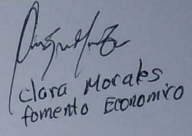 Clara Morales
fomento Economico